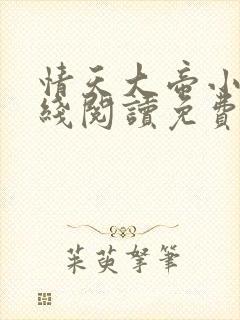 情天大帝小
綫閱讀免費
茱萸拏筆